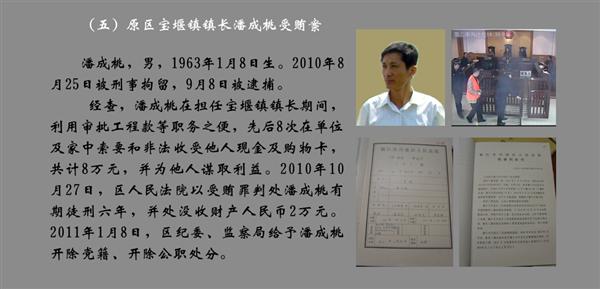 （五）原区宝堰镇镇长潘成桃受贿案
潘成桃，男，1963年1月8日生。2010年8
月25日被刑事拘留，9月8日被逮捕。
经查，潘成桃在担任宝堰镇镇长期间，
利用审批工程款等职务之便，先后8次在单位
及家中索要和非法收受他人现金及购物卡，
共计8万元，并为他人谋取利益。2010年10
月27日，区人民法院以受贿罪判处潘成桃有
期徒刑六年，并处没收财产人民币2万元。
2011年1月8日，区纪委、监察局给予潘成桃
开除党籍、开除公职处分。